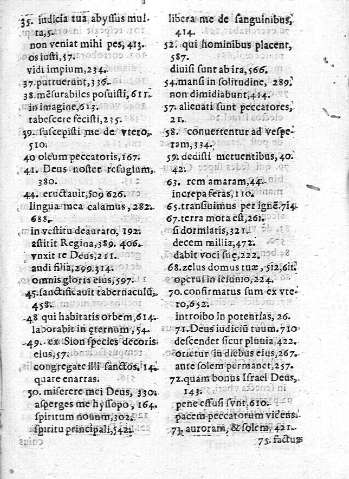 35. iudicia tua abyssus mul
ta,5.
non veniat mihi pes, 413.
os iusti, 57.
vidi impium, 234.
37. putruerunt, 336.
38. mēsurabiles posuisti, 611
in imagine, 613.
tabescere fecisti, 235.
39. suscepisti me de vtero,
510.
40 oleum peccatoris, 167.
41. Deus noster refugium,
380.
44. eructauit, 509 626.
lingua mea calamus, 282
688.
in vestitu deaurato, 192.
astitit Regina, 389. 406.
vnxit te Deus, 211.
audi filia, 299. 314.
omnis gloria eius, 597.
45. sanctificauit tabernaculū
458.
48 qui habitatis orbem, 614
laborabit in æternum, 54.
49. ex Sion species decoris
eius, 57.
congregate illi sanctos, 14
quare enarras.
50. miserere mei Deus, 330.
asperges me hyssopo, 164.
spiritum nouum, 302.
spiritu principali, 542.
libera me de sanguinibus,
414.
52. qui hominibus placent,
587.
diuisi sunt ab ira, 566.
54. mansi in solitudine, 289.
non dimidiabunt, 414.
57. alienati sunt peccatores,
21.
58. conuertentur ad vespe
ram, 334.
59. dedisti metuentibus, 40.
42.
63. rem amaram, 44.
increpa feras, 110.
65. transiuimus per ignē. 714
67. terra mota est, 261.
si dormiatis, 321.
decem millia, 472.
dabit voci suæ, 222.
68. zelus domus tuæ, 512, 611
operui in ieiunio, 224.
70. confirmatus sum ex vte
ro, 652.
introibo in potentias, 26.
71. Deus iudiciū tuum. 710
descendet sicut pluuia, 422.
orietur in diebus eius, 267.
ante solem permanet, 257.
72. quam bonus Israel Deus,
143.
pene effusi sunt, 610.
pacem peccatorum videns
73. auroram, & solem, 421.
73. factus